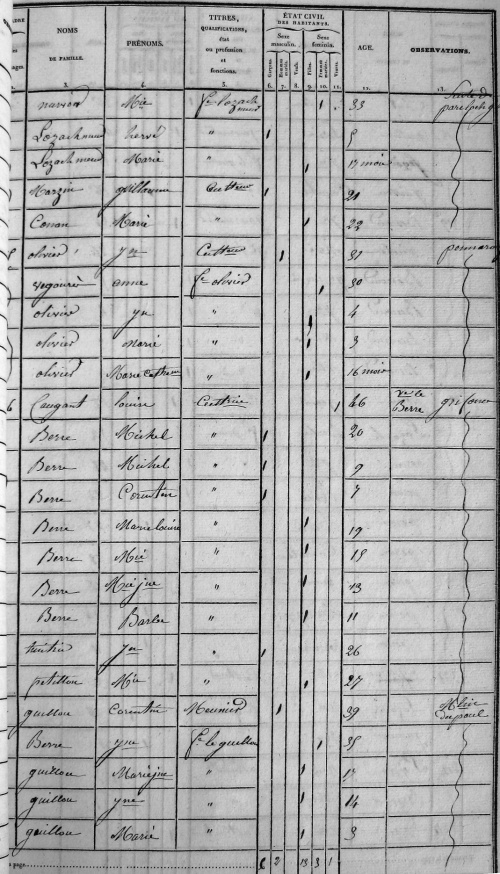 NOMS DE FAMILLE. PRÉNOMS. TITRES, QUALIFICATIONS, état ou profession et fonctions. ÉTAT CIVIL DES HABITANTS. Sexe masculin. Sexe féminin. AGE. OBSERVATIONS.
Garçons. Hommes mariés. Veufs. Filles. Femmes mariées. Veuves.
3. 4. 5. 6. 7. 8. 9. 10. 11. 12. 13.
Mie fe Lozachmeur 1 33
Lozachmeur hervé " 1 5
Lozachmeur Marie " 1 17 mois
Marzin guillaume Cultteur 1 21
Conan Marie " 1 22
olivier yves Cultteur 1 31
anne fe olivier 1 30
olivier yne " 1 4
olivier Marie " 1 3
olivier Marie Catherine " 1 16 mois
6 Caugant louise Cultrice 1 46 ve le Berre
Berre Michel " 1 20
Berre Michel " 1 9
Berre Corentin " 1 7
Berre Marie louise " 1 19
Berre Mie " 1 15
Berre Mie jne " 1 13
Berre Barbe " 1 11
" 1 26
petillon Mie " 1 27
guillou Corentin Meunier 1 39
Berre yne fe le guillou 1 35
guillou Marie jne " 1 17
guillou yne " 1 14
guillou Marie " 1 3
page 6 2 13 3 1